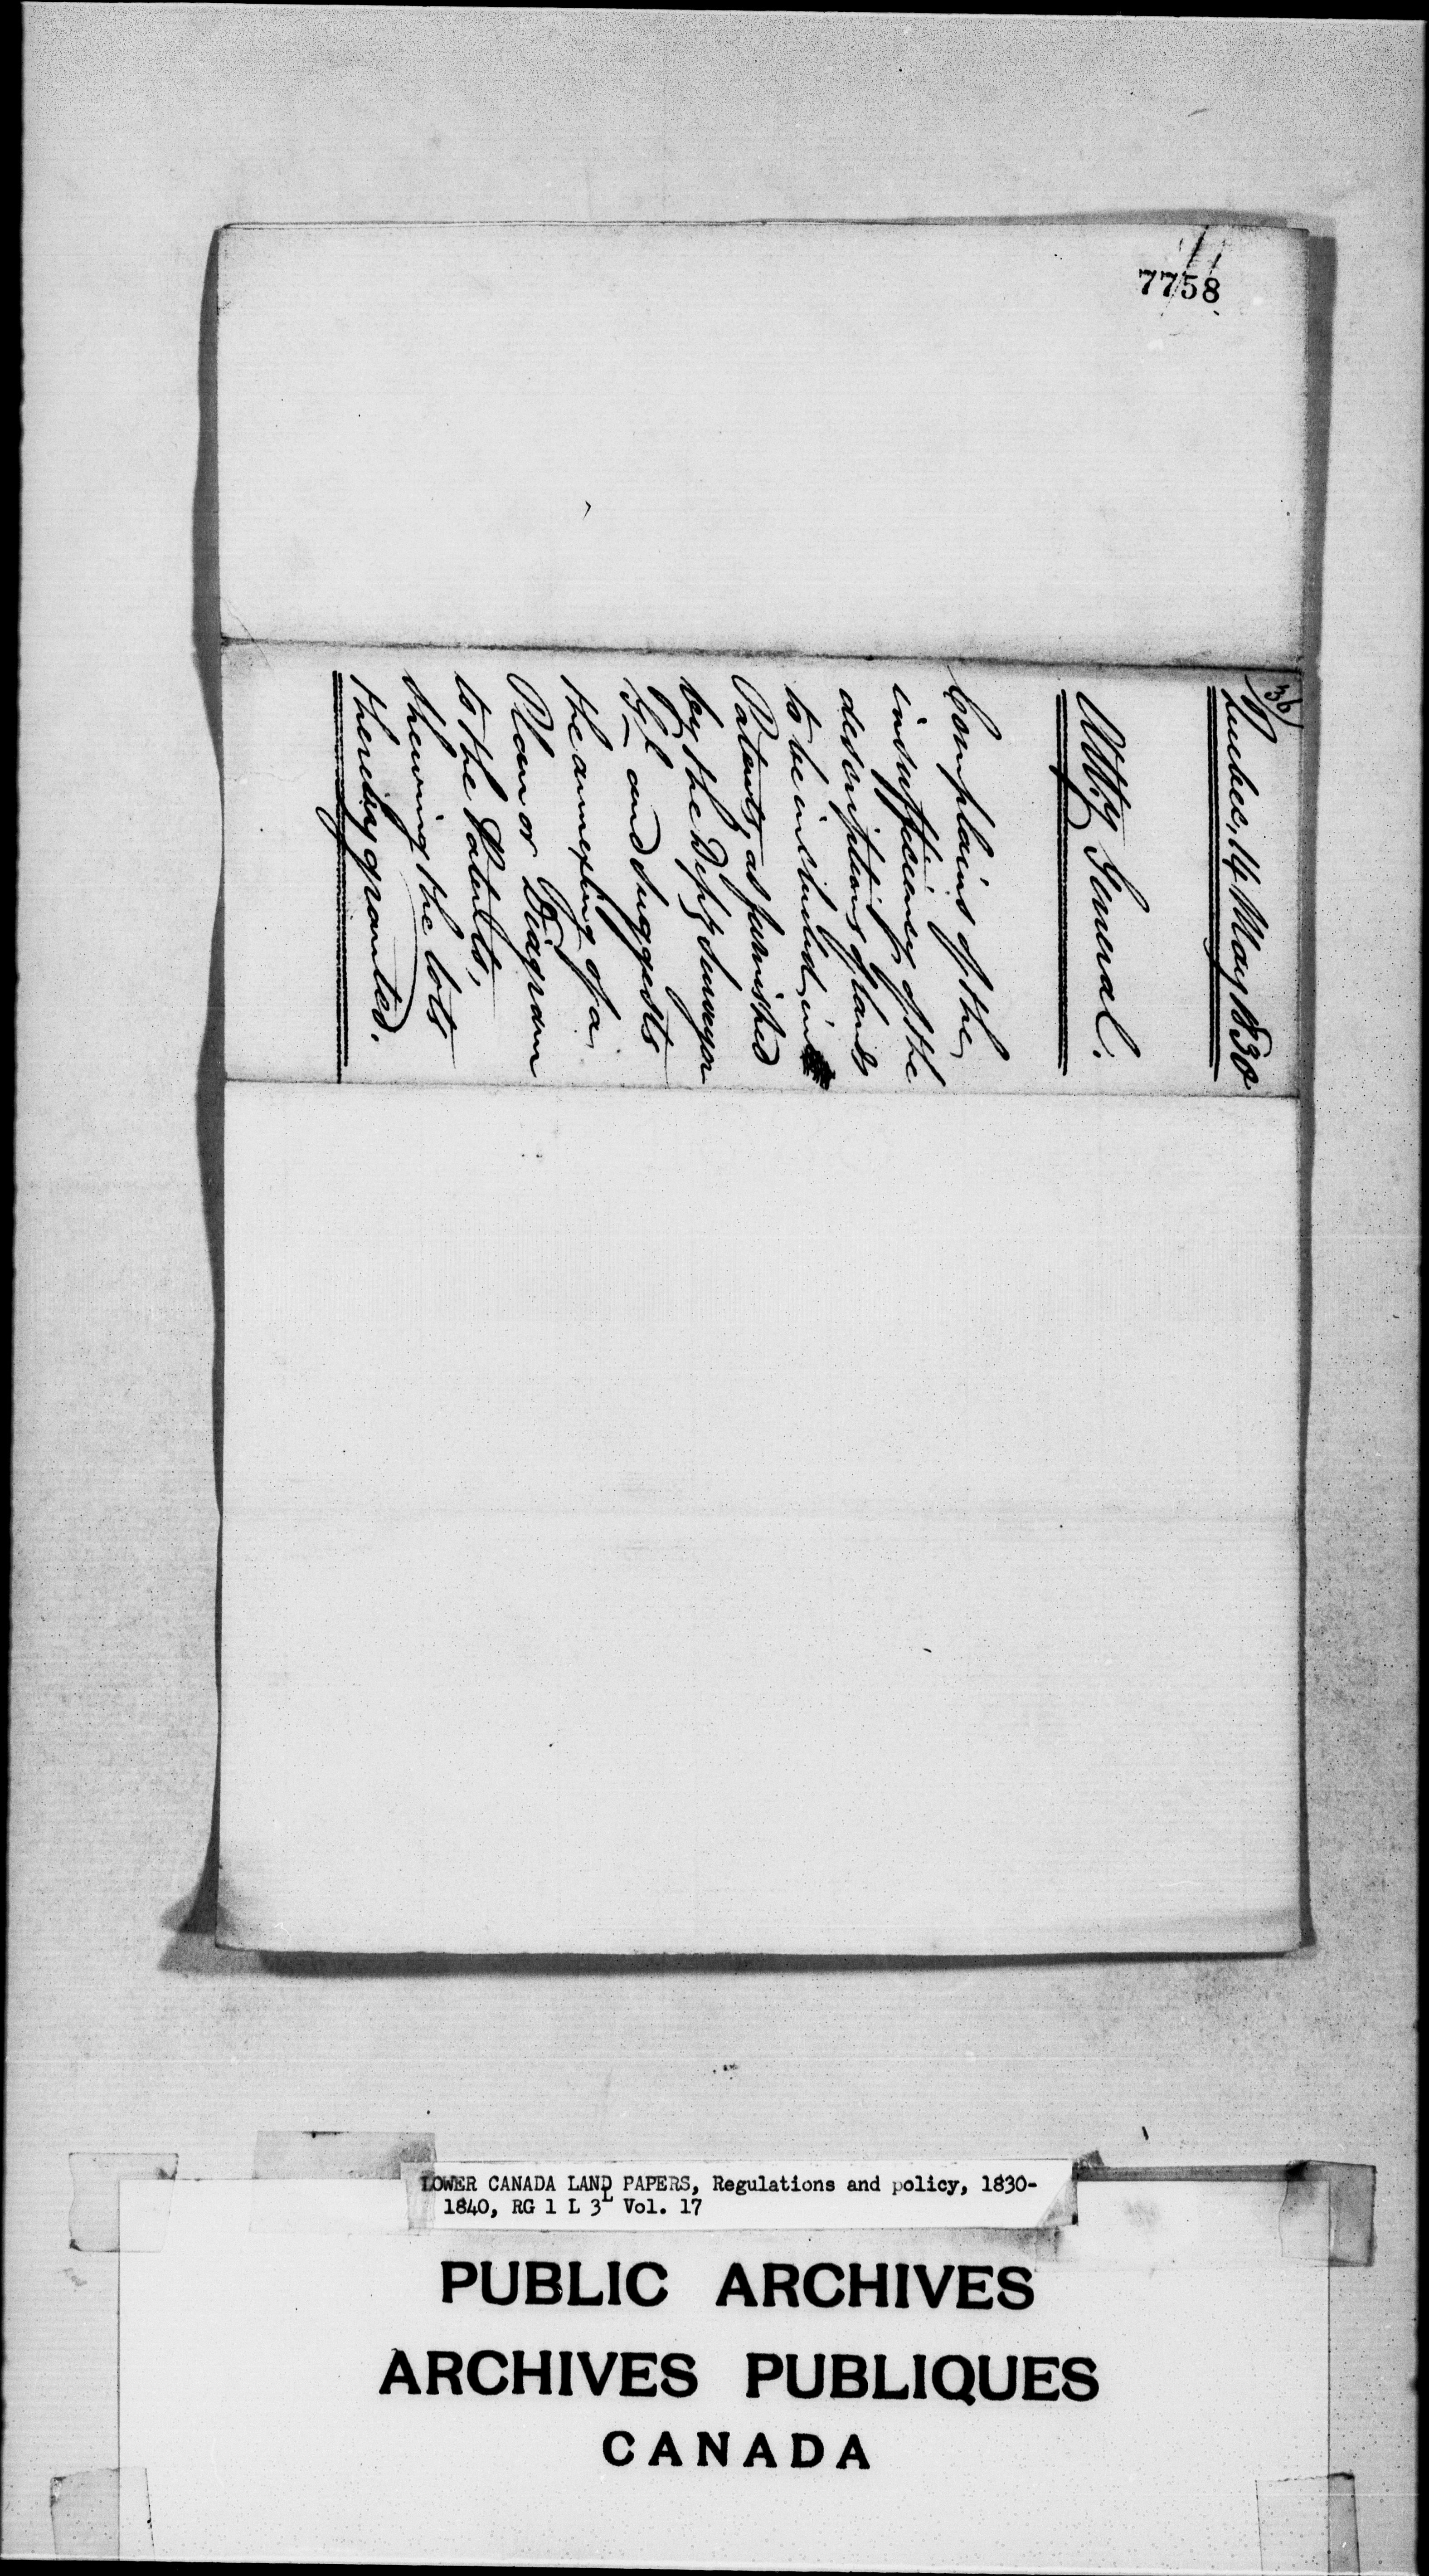 7758
36)
Quebec, 14 May 1830
Atty General.
Complains of the
insufficiency of the
descriptions of lands
to be included in
Patents, as furnished
by the Depy Surveyor
Gl and suggests
the annexing of a
Plan or Diagram
to the Patents,
shewing the lots
thereby granted.
LOWER CANADA LAND PAPERS, Regulations and policy, 1830-
1840, RG 1 L 3L Vol. 17
PUBLIC ARCHIVES
ARCHIVES PUBLIQUES
CANADA